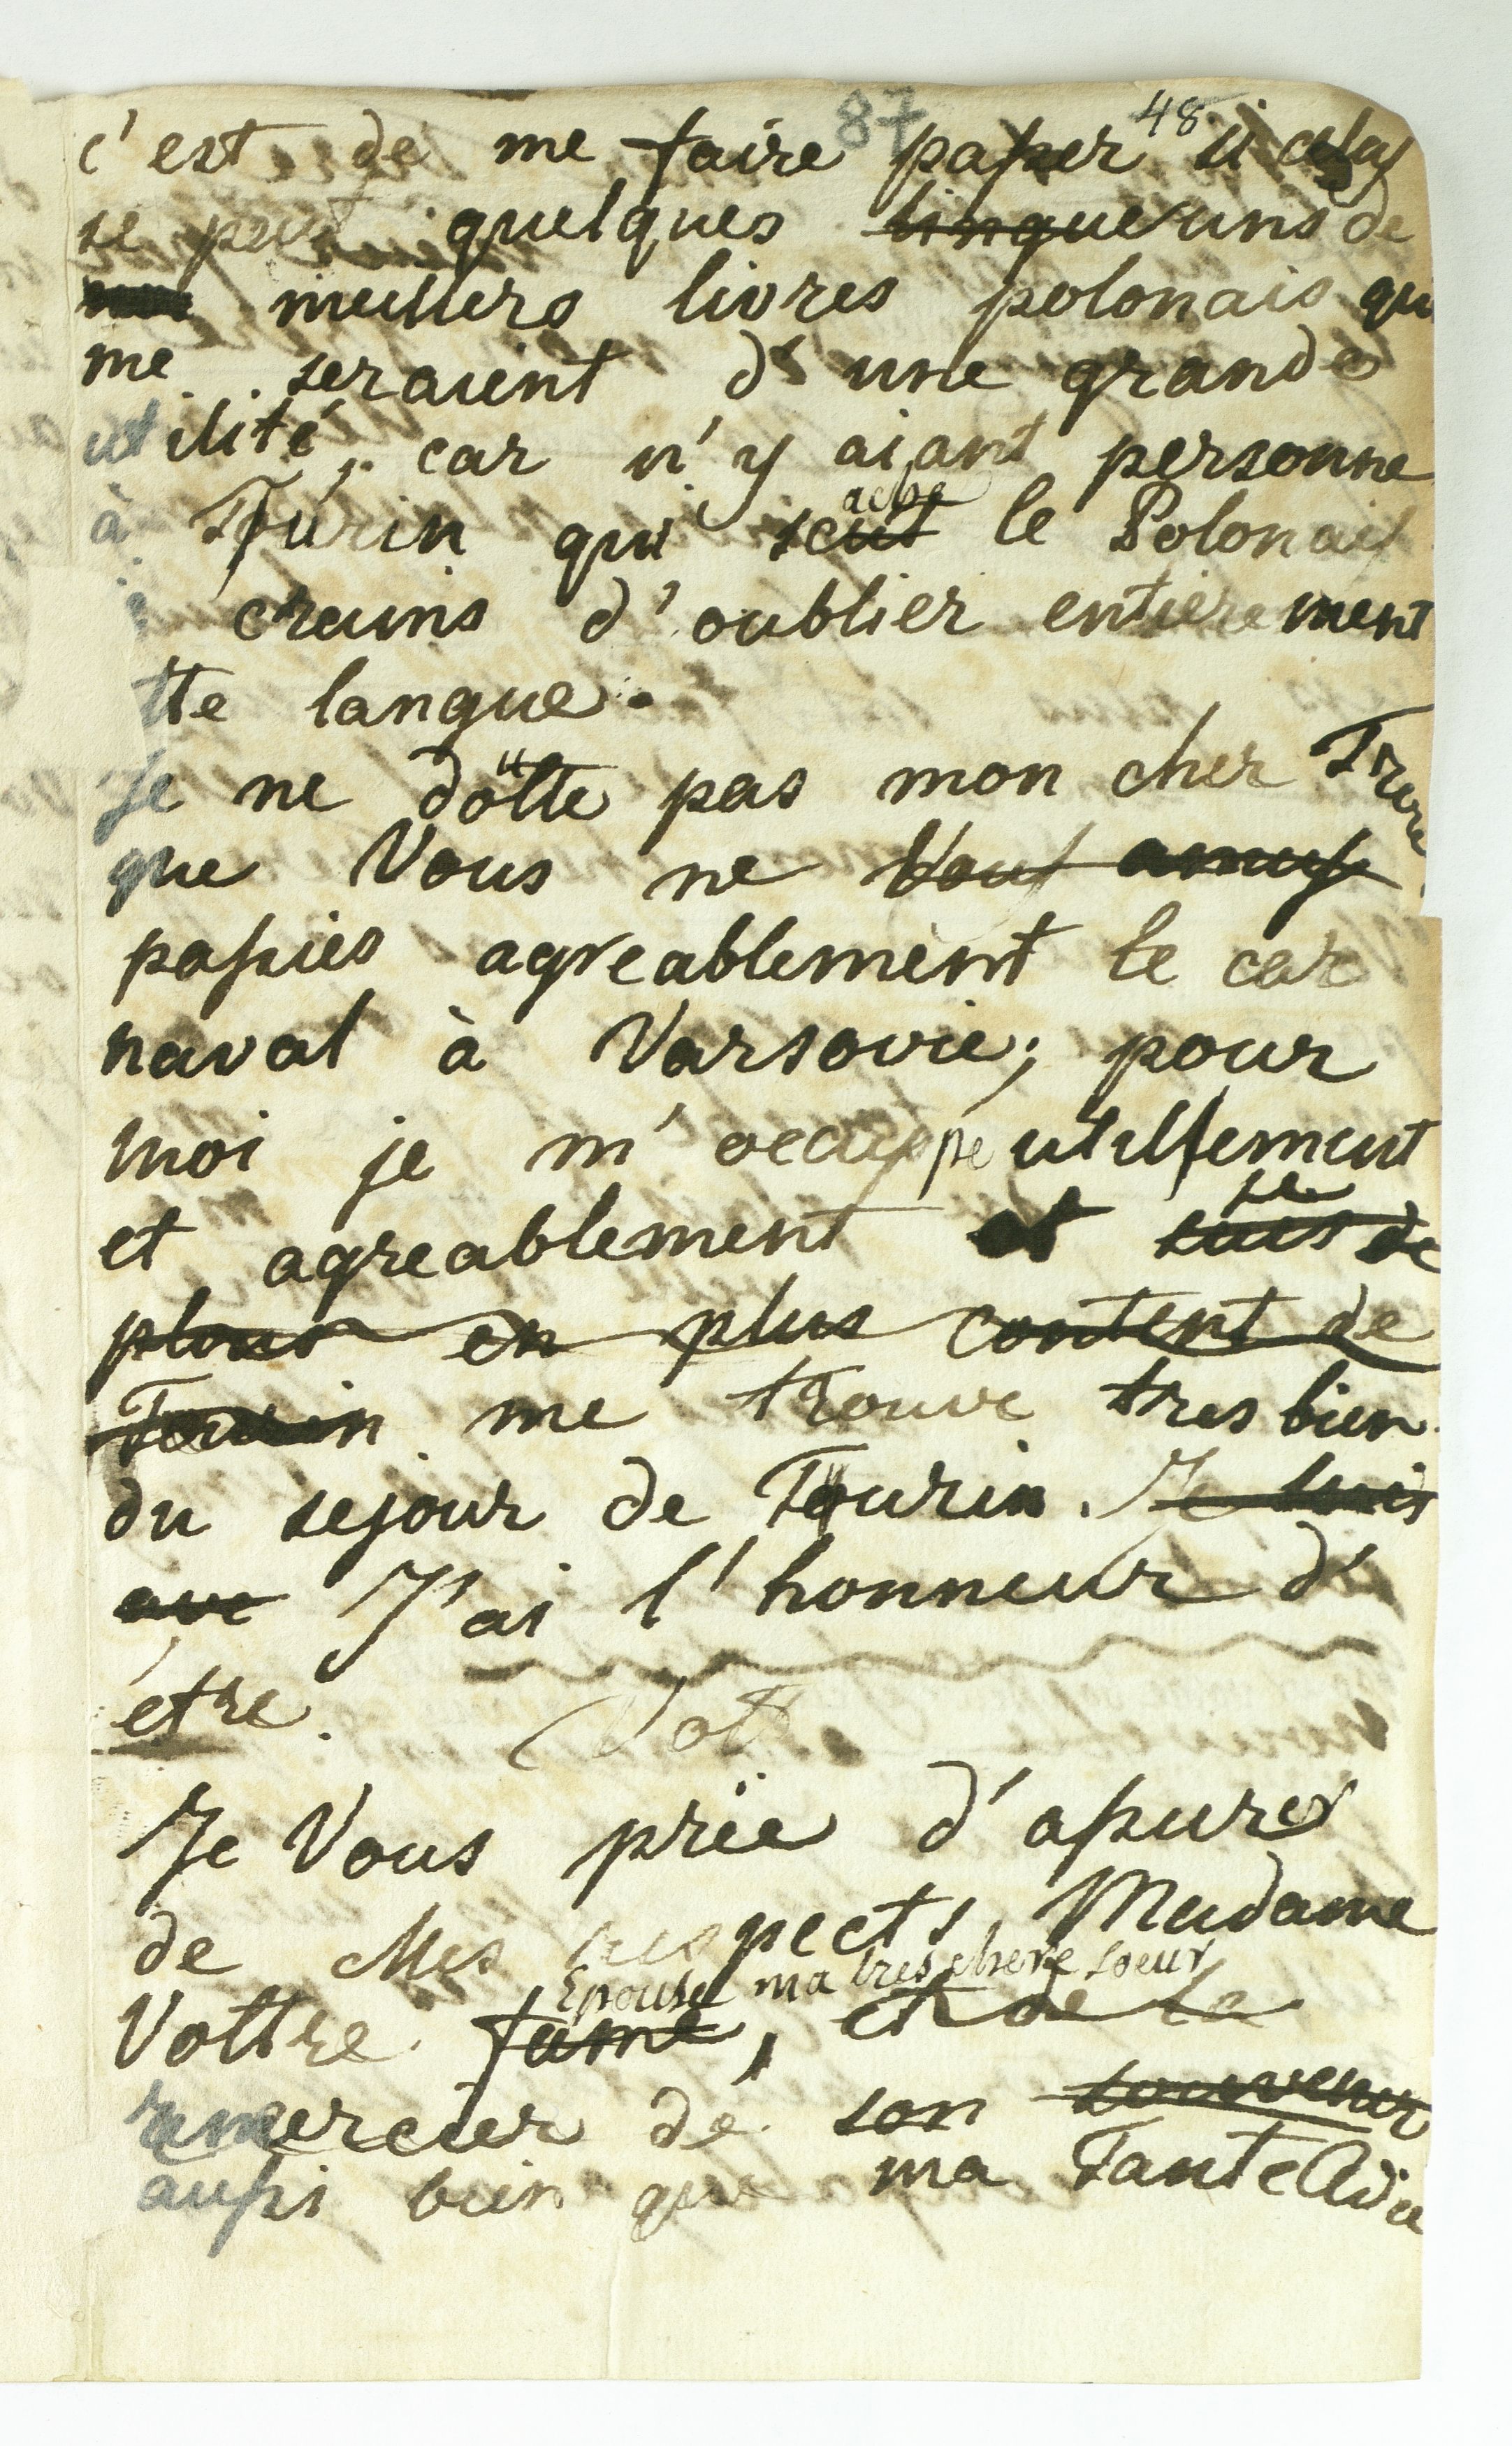 87 48.
c'est de me faire passer si cela
se peut quelques lingue uns de
meillers livres polonais qu
me seraient d'une grande
utilité, car n'y aiant personne
à Turin qui scut ache le Polonais
crains d'oublier entierement
tte langue.
Je ne doutte pas mon cher Frere
que Vous ne Vous amuse
passies agreablement le car
naval à Varsovie; pour
moi je m'occuppe utillement
et agreablement et je suis de
plous en plus content de
Tourin me trouve tres bien
du sejour de Tourin. Je suis
ave J'ai l'honneur d'
étre. Vott
Je Vous priee d'assurer
de Mes respects Madame
Epouse ma tres chere soeur
Vottre fame, et de la
remercier de son souvenir
aussi bien que ma Tante